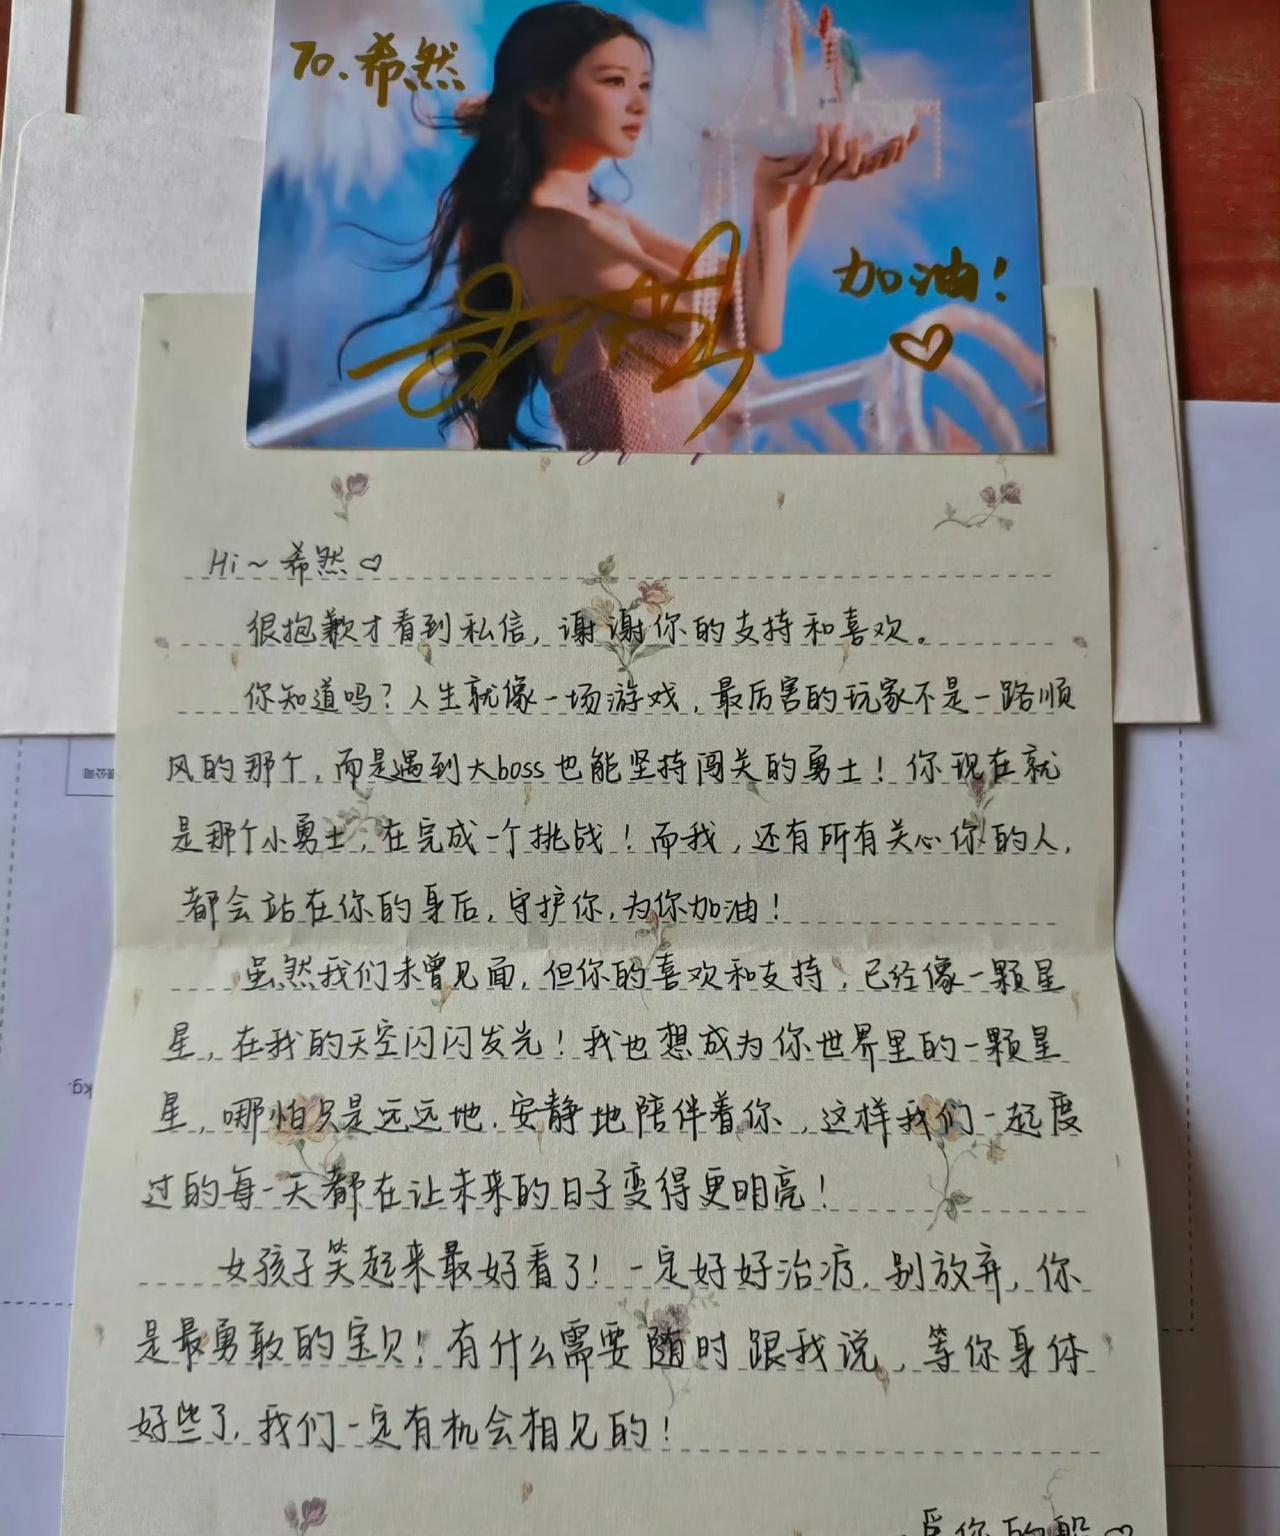 To.希然
加油！
Hi~希然♡
很抱歉才看到私信，谢谢你的支持和喜欢。
你知道吗？人生就像一场游戏，最厉害的玩家不是一路顺
风的那个，而是遇到大boss也能坚持闯关的勇士！你现在就
是那个小勇士，在完成一个挑战！而我，还有所有关心你的人，
都会站在你的身后，守护你，为你加油！
虽然我们未曾见面，但你的喜欢和支持，已经像一颗星
星，在我的天空闪闪发光！我也想成为你世界里的一颗星
星，哪怕只是远远地，安静地陪伴着你，这样我们一起度
过的每一天都在让未来的日子变得更明亮！
女孩子笑起来最好看了！一定好好治疗，别放弃，你
是最勇敢的宝贝！有什么需要随时跟我说，等你身体
好些了，我们一定有机会相见的！
你的
kg.